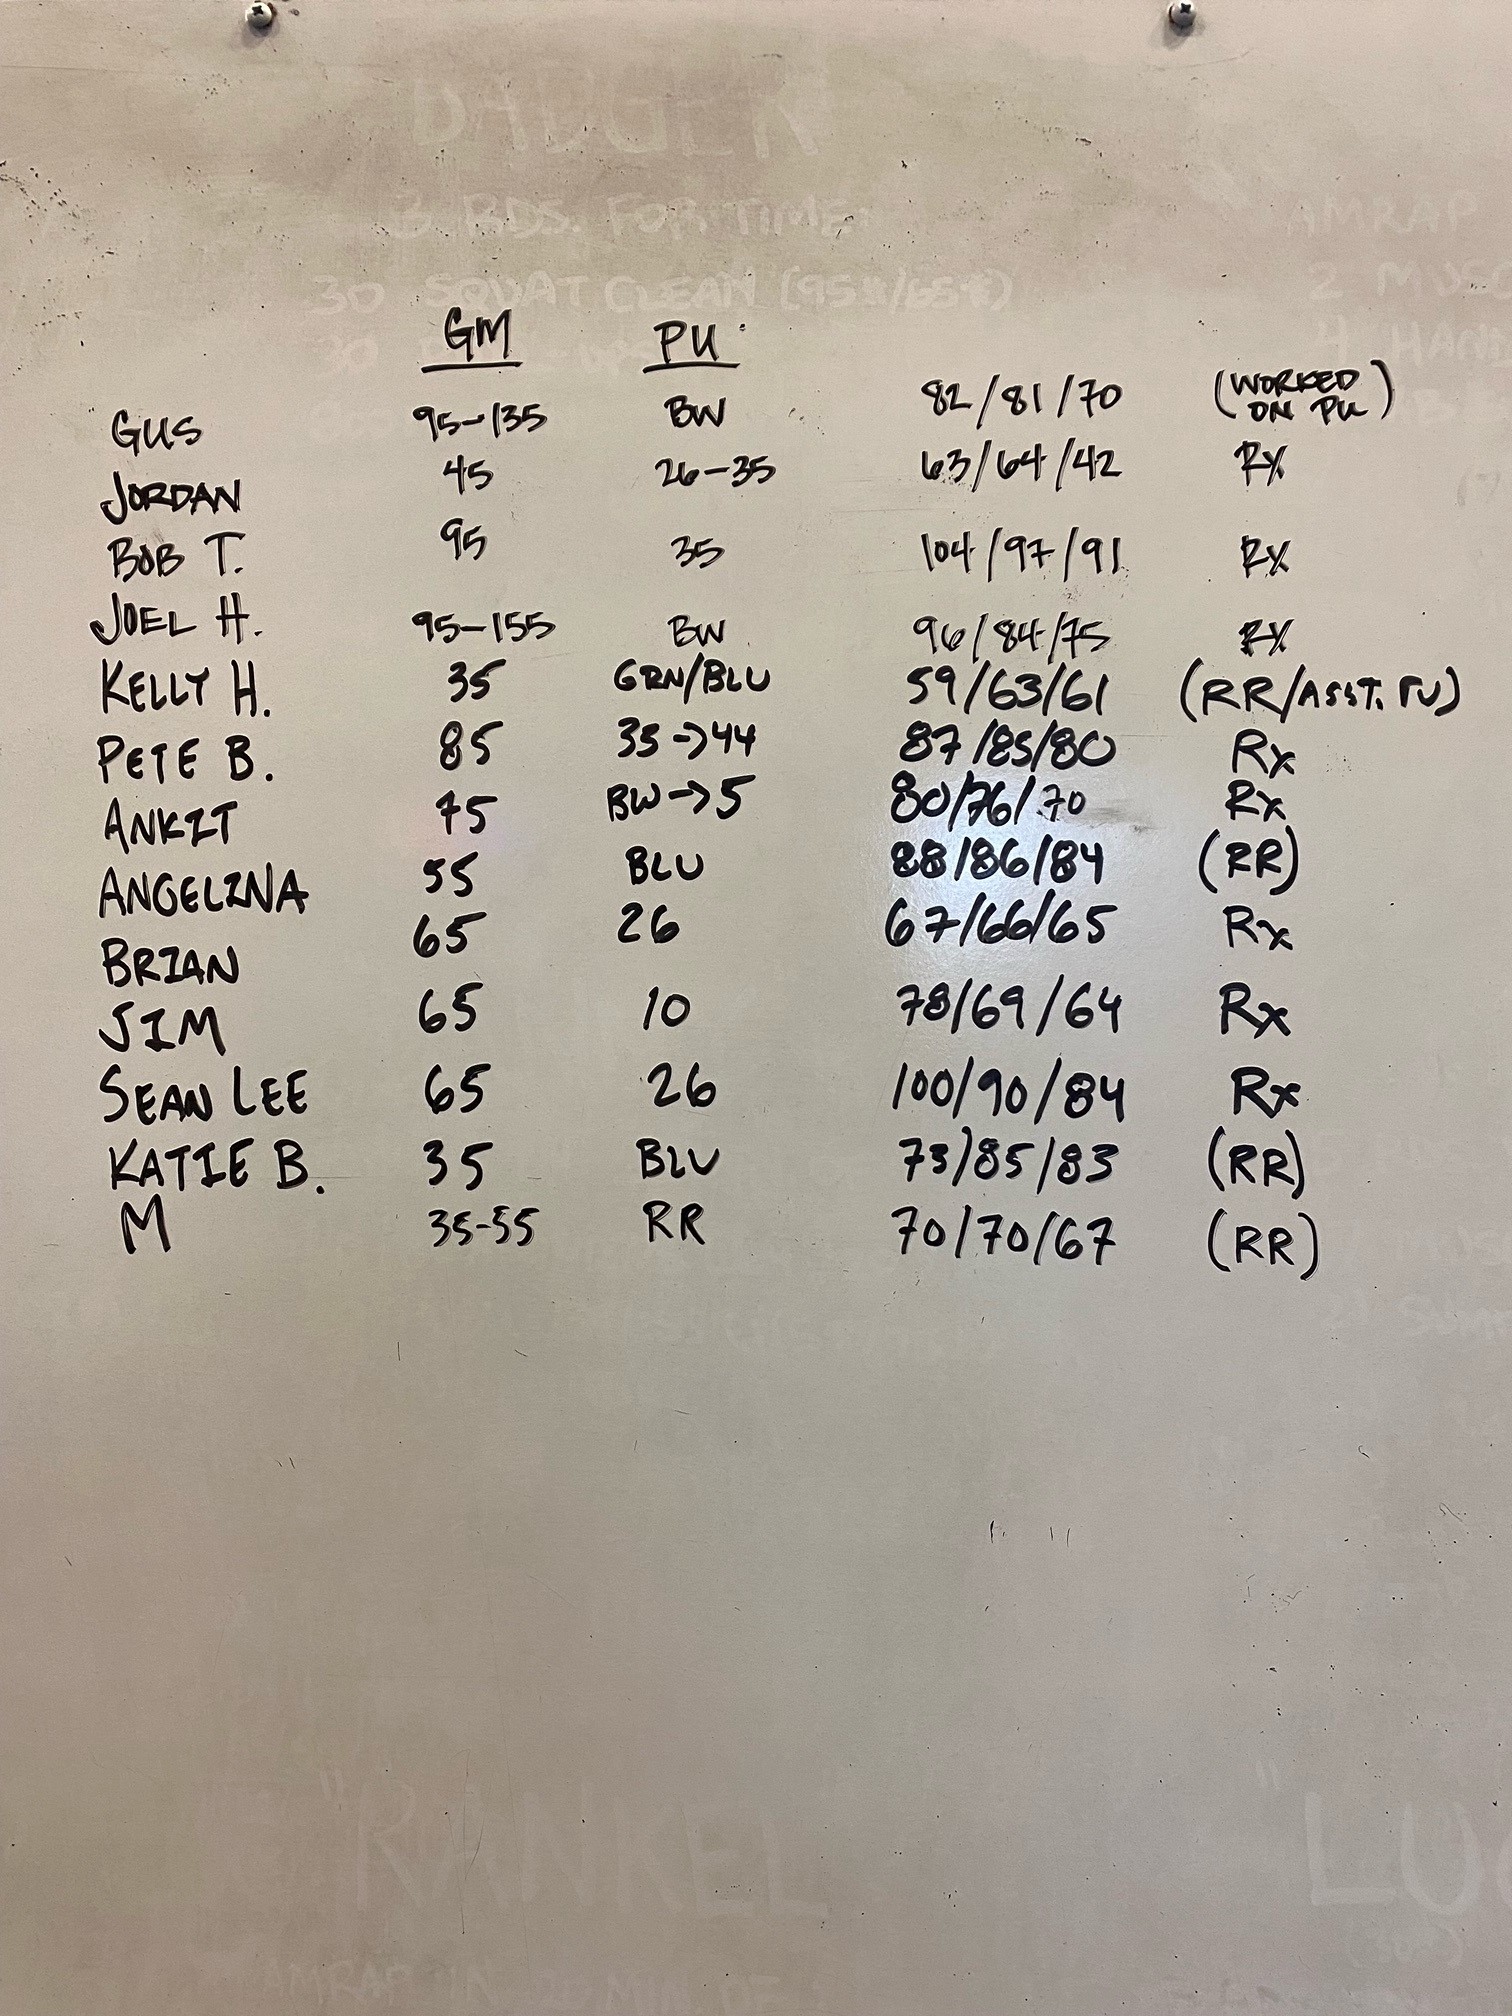 BADGER
3 RDS. FOR TIME:
30 SQUAT CLEAN (95#/65#)
30
AMRAP
2
4
GM PU
GUS 95-135 BW 82/81/70 (WORKED ON PU)
JORDAN 45 26-35 63/64/42 RX
BOB T. 95 35 104/97/91 RX
JOEL H. 95-155 BW 96/84/75 RX
KELLY H. 35 GRN/BLU 59/63/61 (RR/ASST. PU)
PETE B. 85 35→44 87/85/80 Rx
ANKIT 75 BW→5 80/76/70 Rx
ANGELINA 55 BLU 88/86/84 (RR)
BRIAN 65 26 67/66/65 Rx
JIM 65 10 78/69/64 Rx
SEAN LEE 65 26 100/90/84 Rx
KATIE B. 35 BLU 73/85/83 (RR)
M 35-55 RR 70/70/67 (RR)
"RANKEL
AMRAP IN 20 MIN. OF